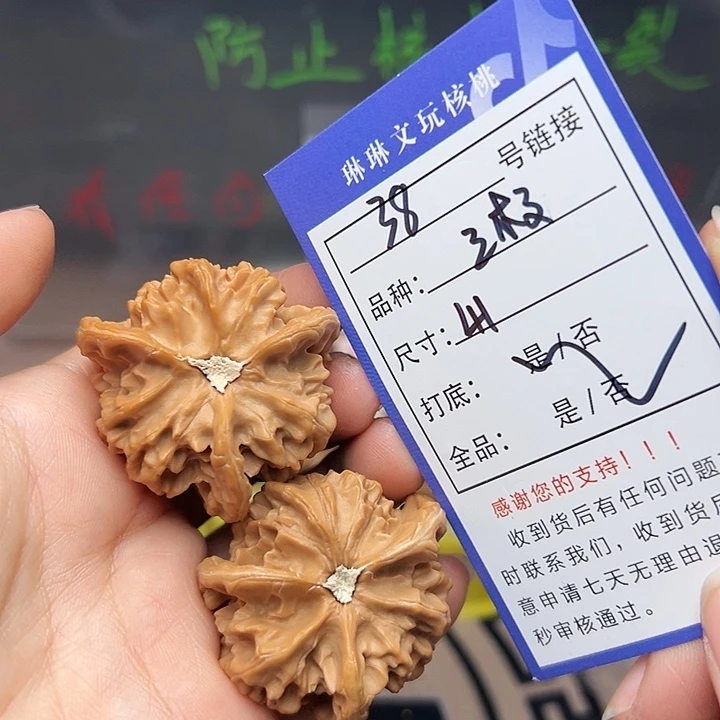 防止
琳琳文玩核桃
38号链接
品种：三棱
尺寸：41
打底：是/否
全品：是/否
感谢您的支持！！！
收到货后有任何问题
时联系我们，收到货后
意申请七天无理由退
秒审核通过。